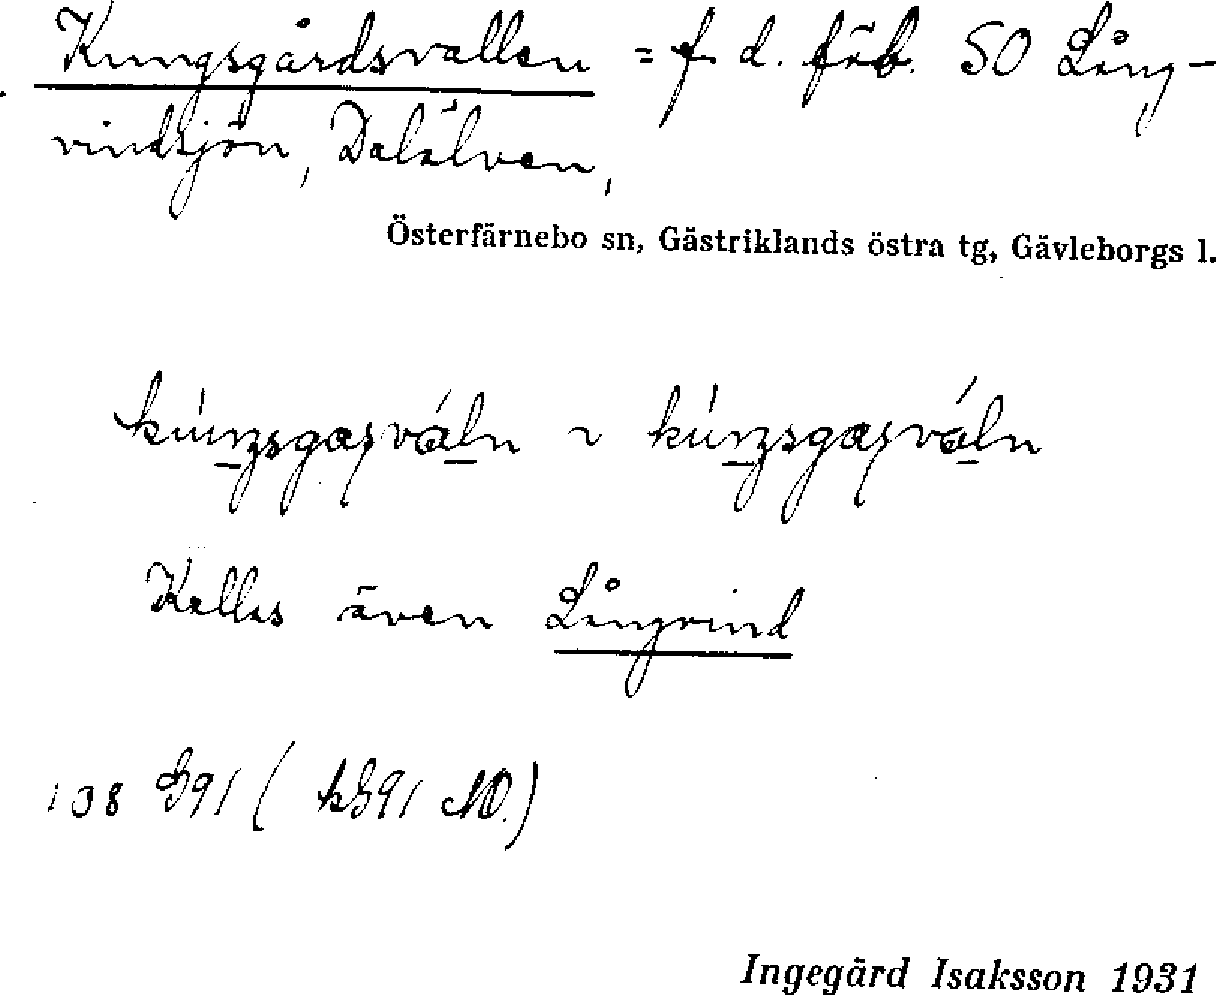 Kungsgårdsvallen = f. d. fäb. SO Lång-
vindsjön, Dalälven,
Österfärnebo sn, Gästriklands östra tg, Gävleborgs l.
Kallas även Långvind
108 G91 ( kG91 NO.)
Ingegärd Isaksson 1931